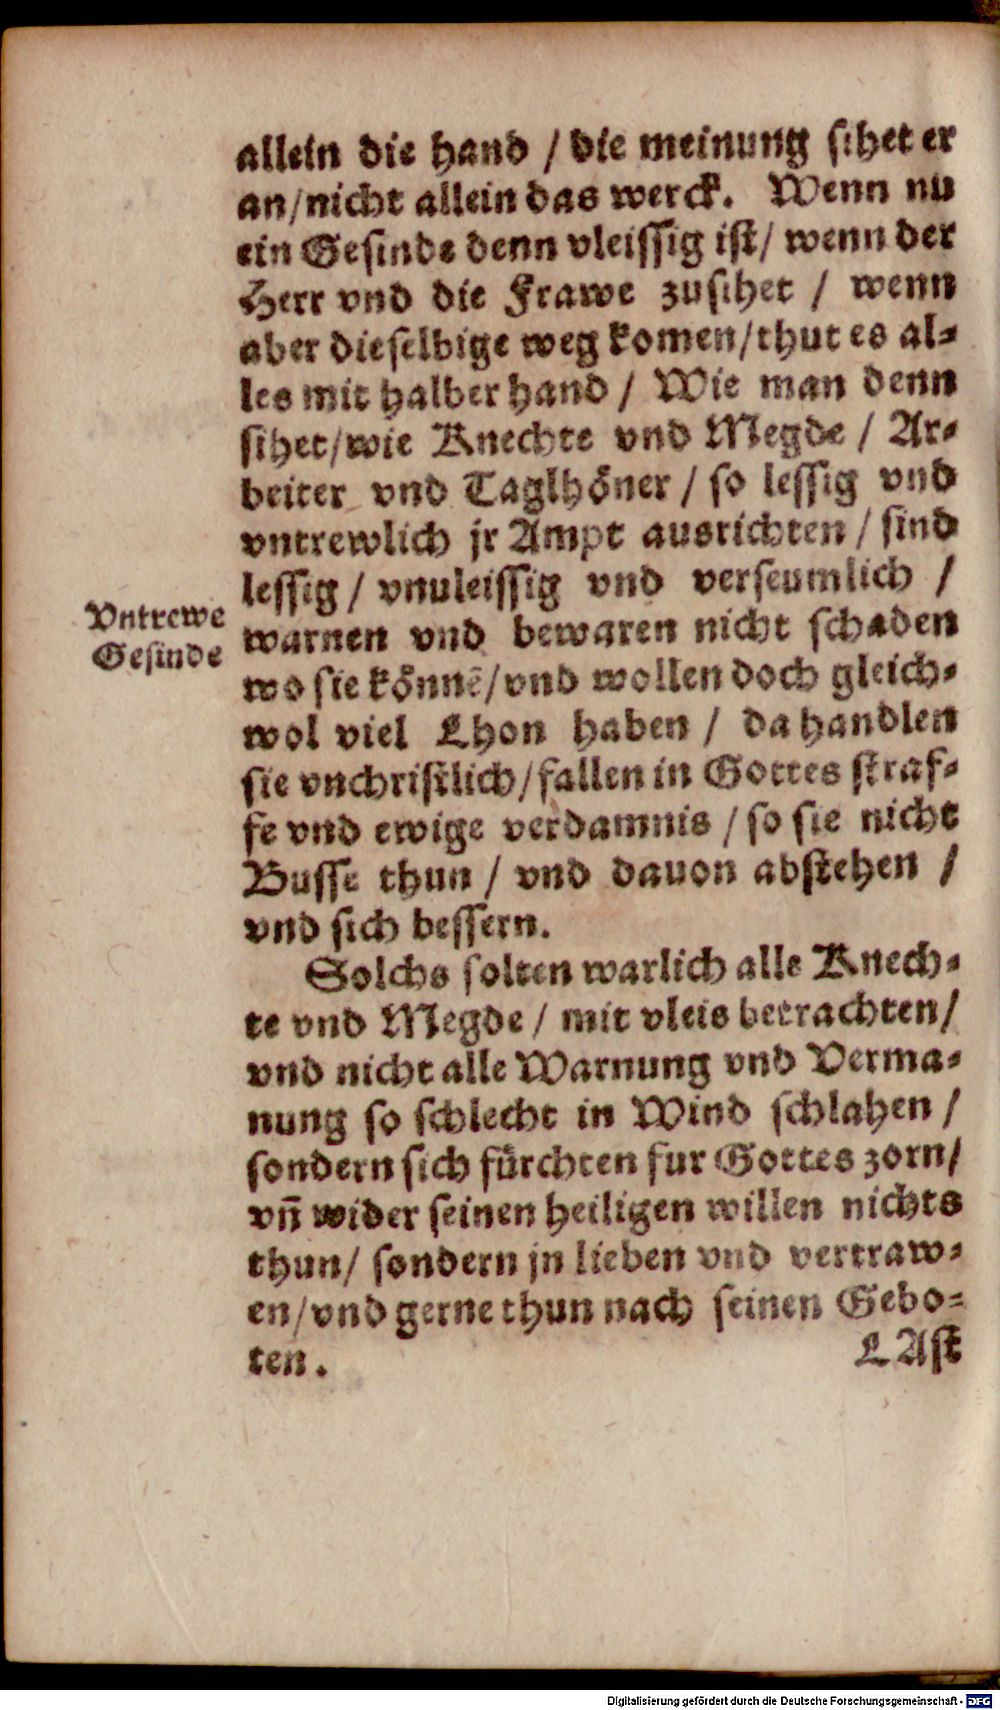 allein die hand / die meinung sihet er
an/nicht allein das werck. Wenn nu
ein Gesinde denn vleissig ist/ wenn der
Herr vnd die Frawe zusihet / wenn
aber dieselbige weg komen/thut es al-
les mit halber hand / Wie man denn
sihet/wie Knechte vnd Megde / Ar-
beiter vnd Taglhöner / so lessig vnd
vntrewlich jr Ampt ausrichten / sind
lessig / vnuleissig vnd verseumlich /
Vntrewe
Gesinde
warnen vnd bewaren nicht schaden
wo sie könnē/vnd wollen doch gleich-
wol viel Lhon haben / da handlen
sie vnchristlich/fallen in Gottes straf-
fe vnd ewige verdamnis / so sie nicht
Busse thun / vnd dauon abstehen /
vnd sich bessern.
Solchs solten warlich alle Knech-
te vnd Megde / mit vleis betrachten/
vnd nicht alle Warnung vnd Verma-
nung so schlecht in Wind schlahen /
sondern sich fürchten fur Gottes zorn/
vñ wider seinen heiligen willen nichts
thun/ sondern jn lieben vnd vertraw-
en/vnd gerne thun nach seinen Gebo-
ten.
LAst
Digitalisierung gefördert durch die Deutsche Forschungsgemeinschaft - DFG